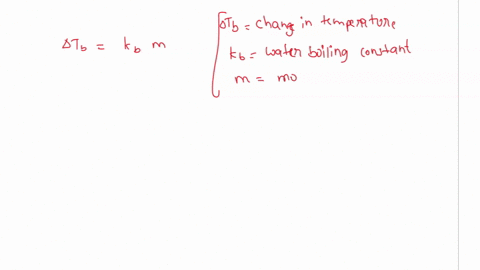 ΔTb = kb m
ΔTb = change in temperature
kb = water boiling constant
m = mo